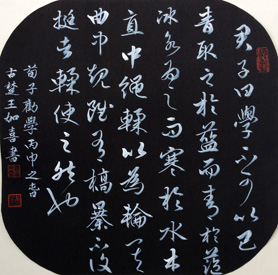 君子曰學不可以已
青取之於藍而青於藍
冰水為之而寒於水木
直中繩輮以為輪其
曲中規雖有槁暴不復
挺者輮使之然也
荀子勸學丙申之春
古楚王如喜書